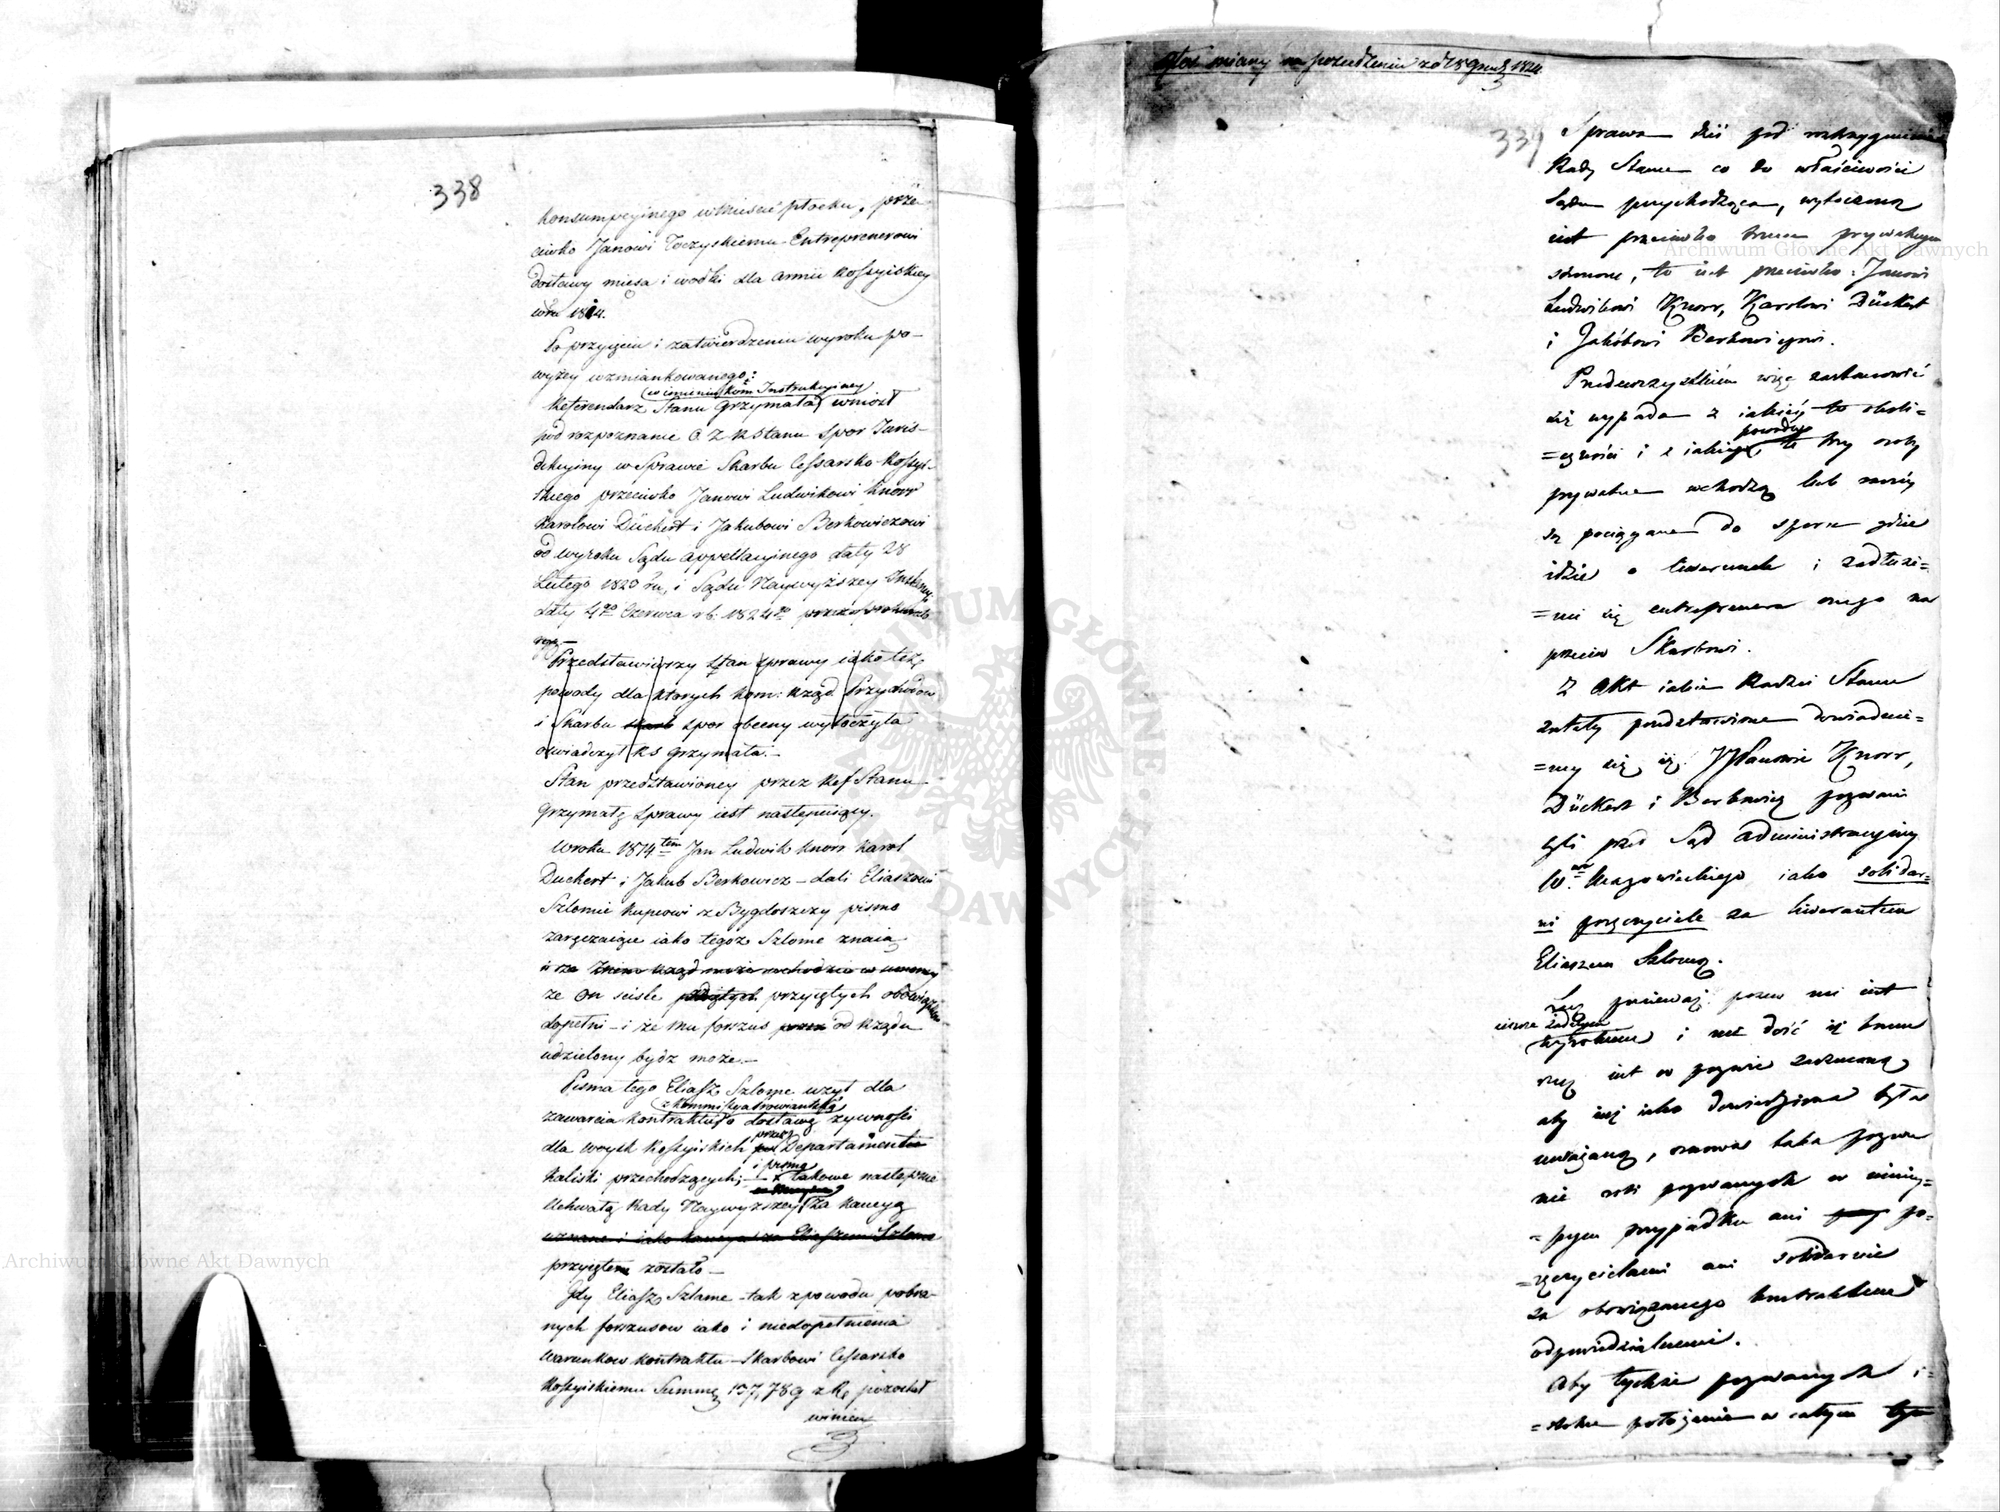 338
konsumpcyinego w Mieście Płocku, prze-
ciwko Janowi Toczyskiemu Entreprenerowi
dostawy mięsa i wódki dla Armii Rossyiskiey
w Ru 1814.
Po przyięciu i zatwierdzeniu wyroku po-
wyżey wzmiankowanego:
(w imieniu Kom Instrukcyiney
Referendarz Stanu Grzymała) wniosł
pod rozpoznanie O. Z R Stanu Spor Juris-
dykcyiny w Sprawie Skarbu Cessarsko-Rossyi-
skiego przeciwko Janowi Ludwikowi Knorr
Karolowi Dückert i Jakubowi Berkowiczowi
od wyroku Sądu Appellacyinego daty 28
Lutego 1823 Ru, i Sądu Naywyższey Instancyi
daty 4go Czerwca rb. 1824go przez
Przedstawiwszy stan sprawy iako też
powody dla ktorych Kom: Rząd. Przychodow
i Skarbu spor obecny wytoczyła
oświadczył RS Grzymała.—
Stan przedstawioney przez Ref Stanu
Grzymałę sprawy iest następuiący.
W roku 1814tem Jan Ludwik Knorr Karol
Duckert i Jakub Berkowicz – dali Eliaszowi
Szlomie kupcowi z Bydgoszczy pismo
zaręczaiące iako tegoż Szlome znaią
że on scisle przyiętych obowiązków
dopełni – i że mu forszus od Rządu
udzielony bydź może.—
Pisma tego Eliasz Szlome użył dla
(z Kommissyą Prowiantską)
zawarcia kontraktu o dostawę żywności
przez
dla woysk Rossyiskich Departament
i pismo
Kaliski przechodzących; – takowe następnie
Uchwałą Rady Naywyższey za kaucyą
uznane i iako kaucya za Eliaszem Szlome
przyiętem zostało –
Gdy Eliasz Szlame – tak z powodu pobra-
nych forszusow iako i niedopełnienia
warunkow kontraktu – Skarbowi Cessarsko
Rossyiskiemu Summę 137,789 zł. pozostał
winien
Głos miany na posiedzeniu z d 18 Grud. 1824.
339
Sprawa dziś pod rozstrzygnienie
Rady Stanu co do właściwości
Sądu przychodząca, wytoczona
iest przeciwko trzem prywatnym
osobom, to iest przeciwko: Janowi
Ludwikowi Knorr, Karolowi Dückert
i Jakóbowi Berkowiczowi.
Przedewszystkiem więc zastanowić
się wypada z iakiéy to okoli-
powodu
=czności i z iakiego, te trzy osoby
prywatne wchodzą lub raczéy
są pociągane do sporu gdzie
idzie o liwerunek i zadłuże-
=nie się entreprenera onego na
przeciw Skarbowi.
Z Akt iakie Radzie Stanu
zostały przedstawione dowiaduie-
=my się iż JPanowie Knorr,
Dückert i Berkowicz pozwani
byli przed Sąd administracyiny
W.wa Mazowieckiego iako solidar-
ni poręczyciele za liweranta
Eliasza Szlomę.
Lecz ponieważ prawo nie iest
ieszcze żadnym
wyrokiem i nie dość iż ta
rzecz iest w pozwie zarzucona
aby iuż iako dowiedziona była
uważana, osnowa taka pozwu
nie robi pozwanych w niniey-
=szym przypadku ani po-
=ręczycielami ani solidarnie
za obowiązanego kontraktem
odpowiedzialnemi.
Aby tychże pozwanych i-
=stotne położenie w całym